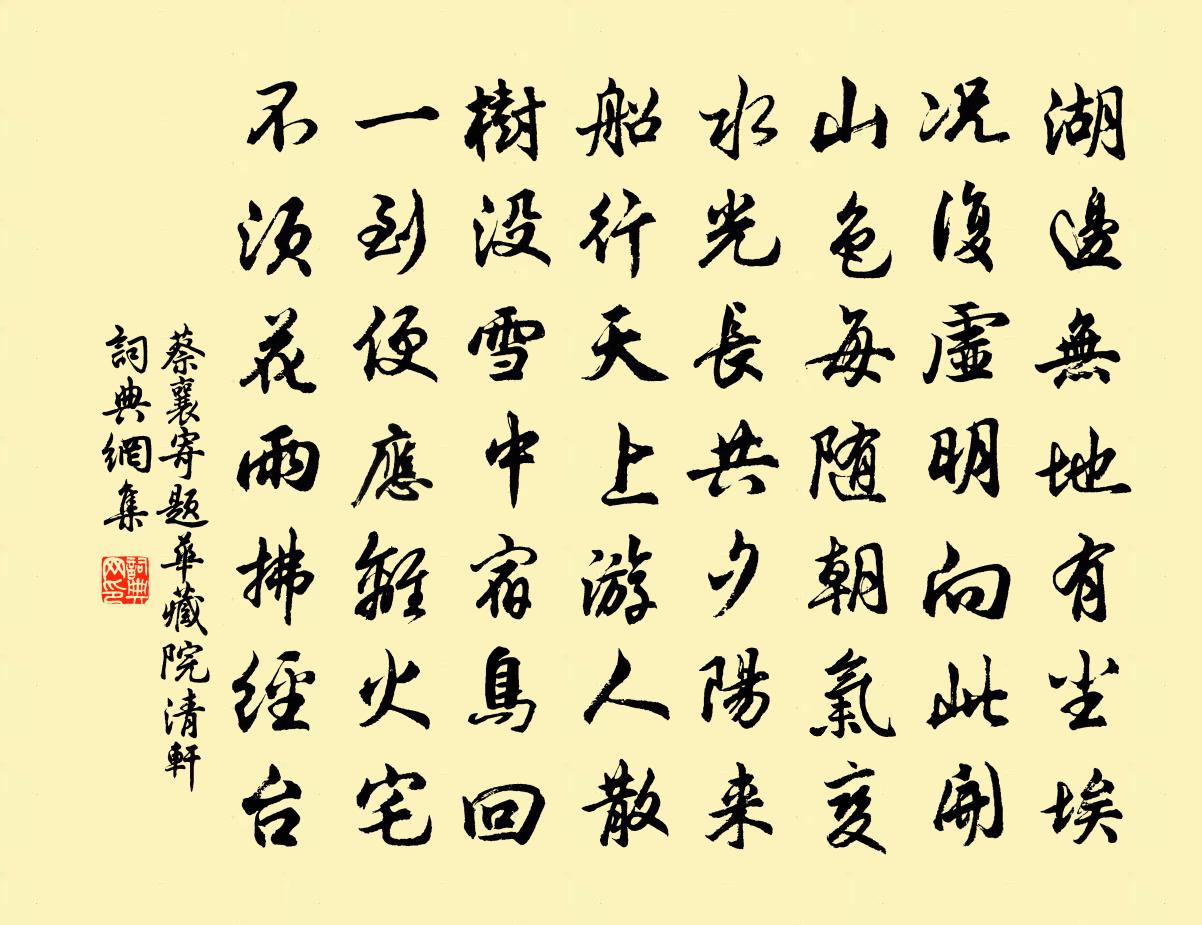 湖邊無地有尘埃
况復虛明向此開
山色每随朝氣变
水光長共夕陽来
船行天上游人散
樹没雪中宿鳥回
一到便應離火宅
不须花雨拂經台
蔡襄寄題華藏院清軒
詞典網集
詞典网印